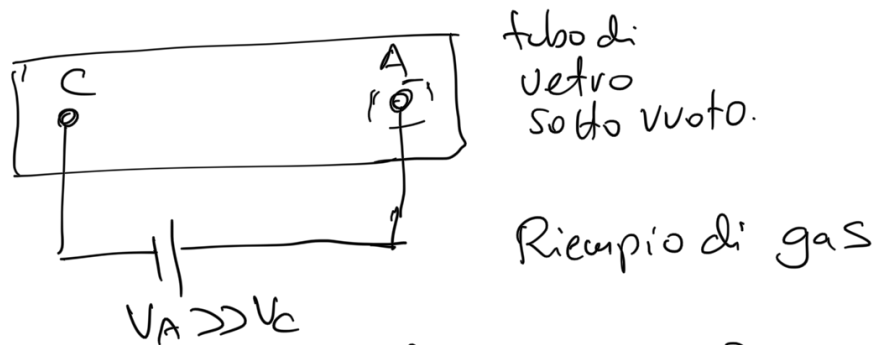 tubo di
C A vetro
sotto vuoto.
Riempio di gas
VA >> VC